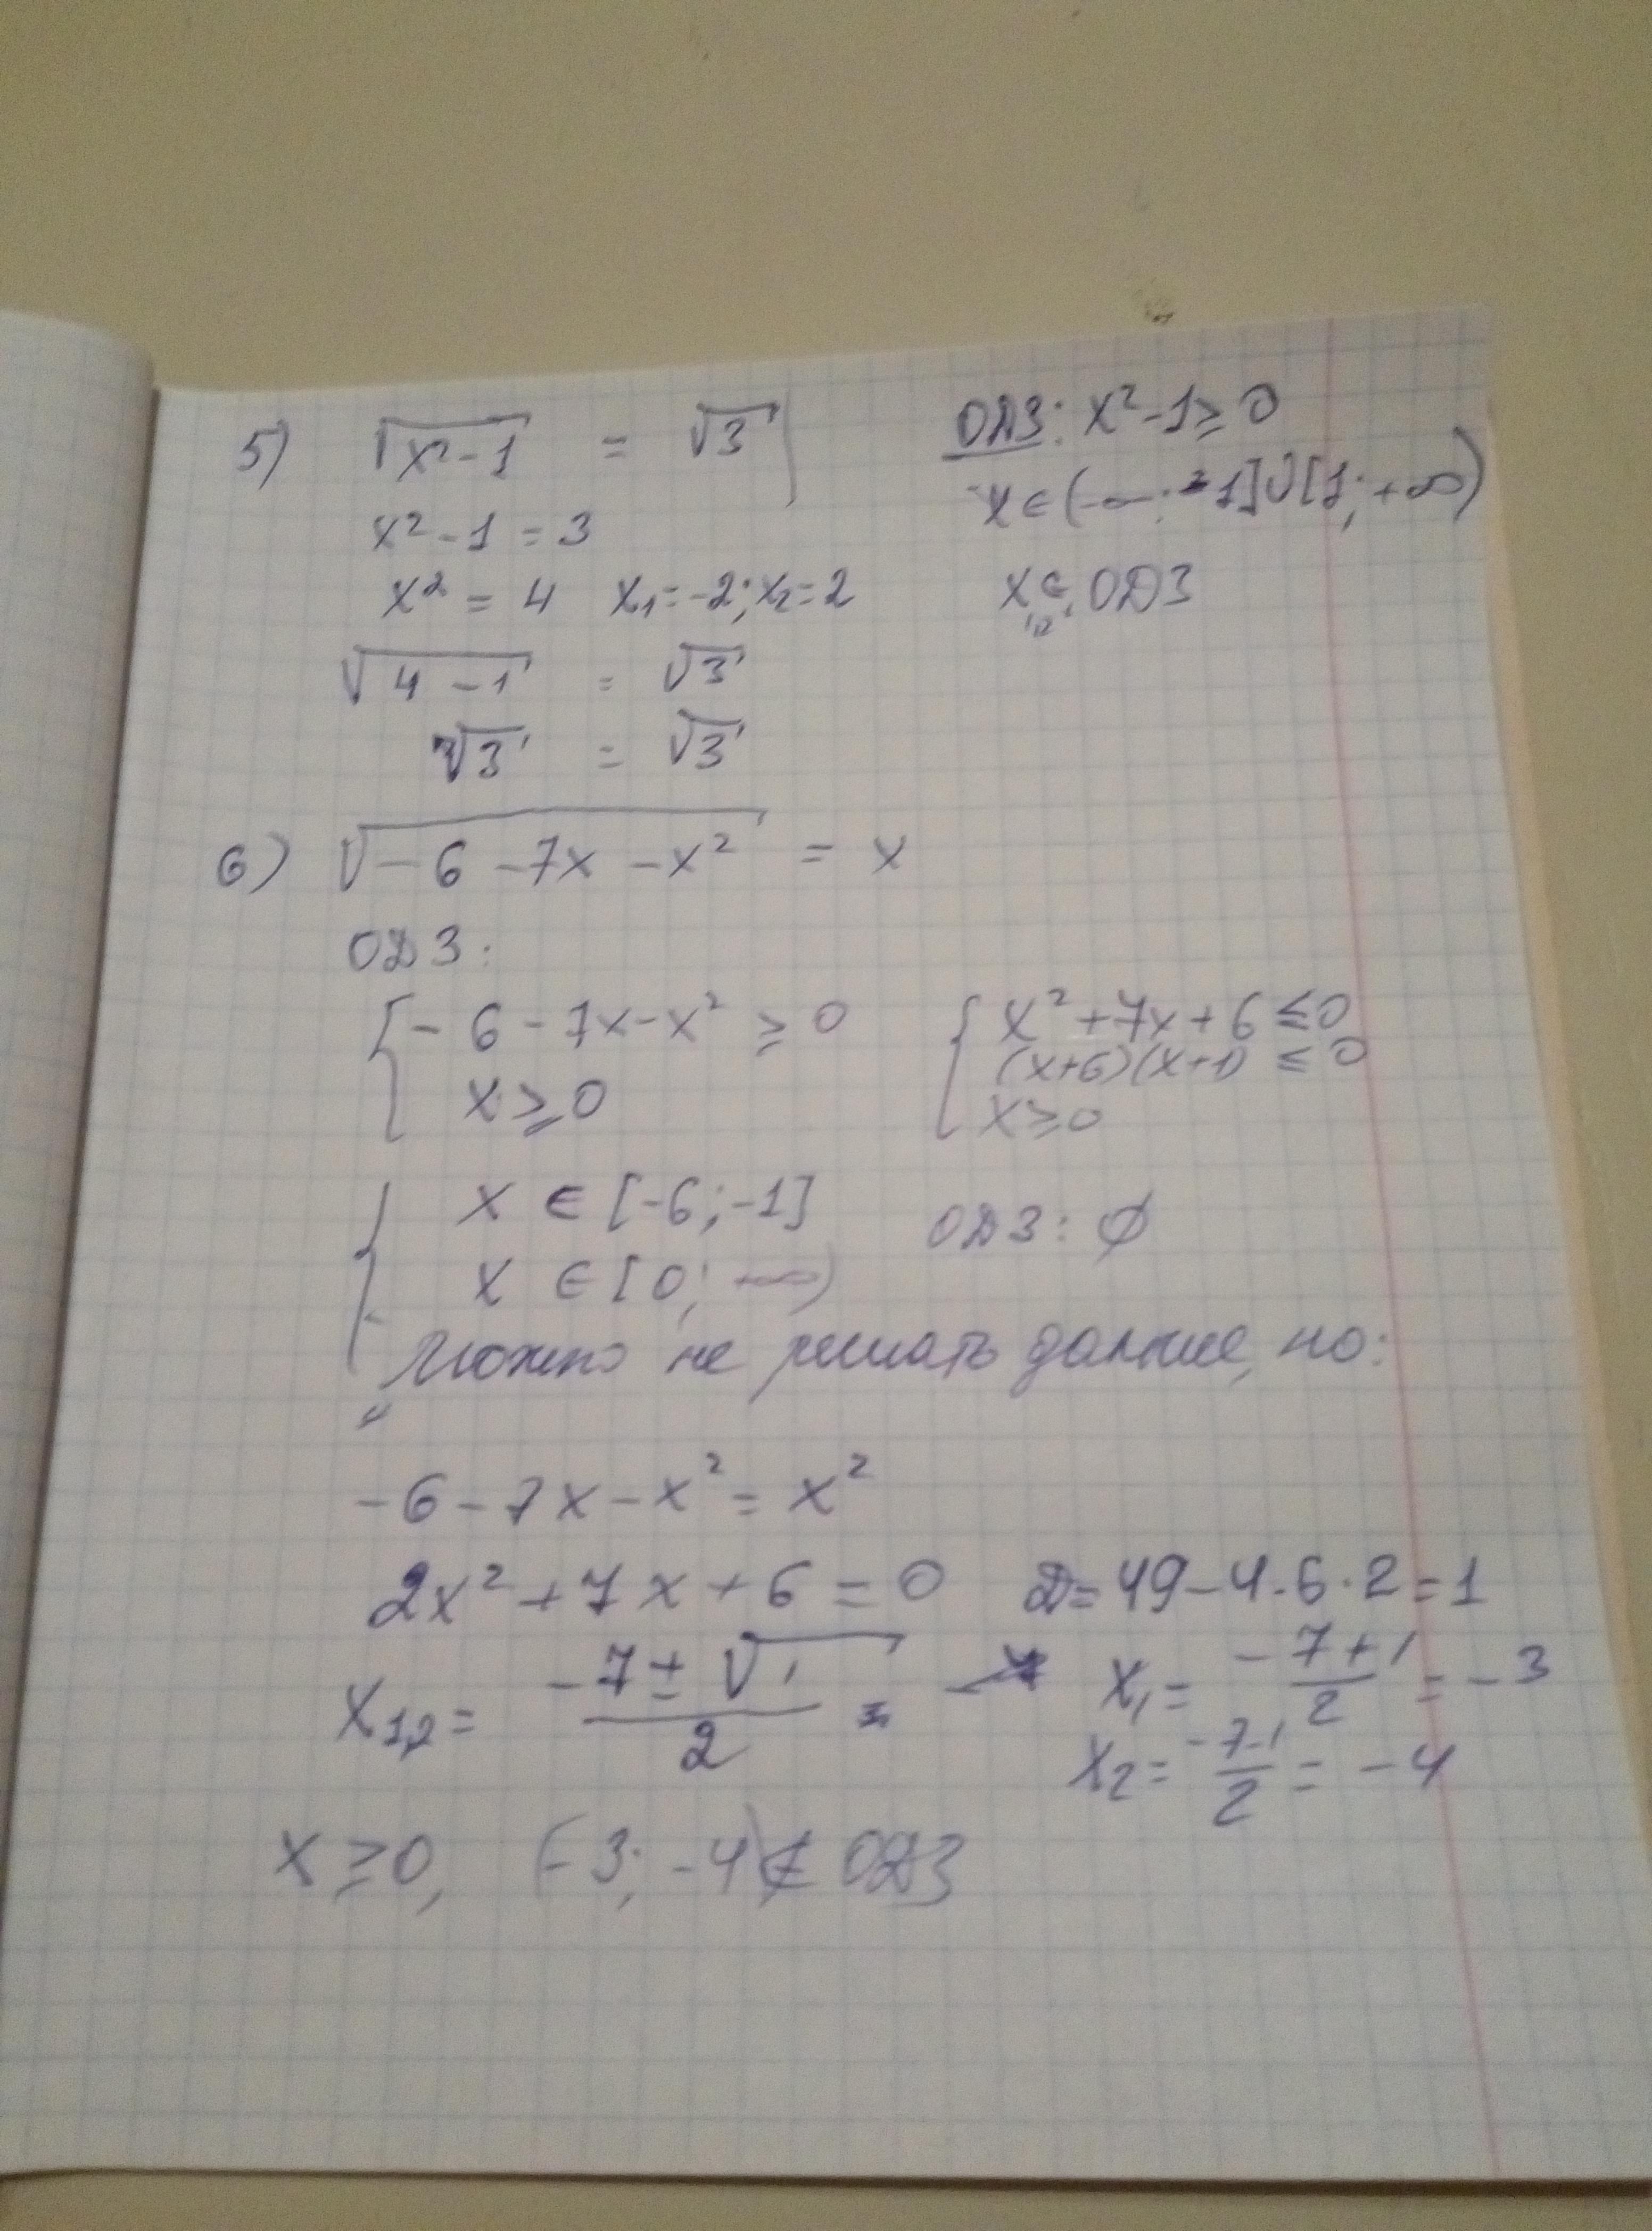 5) √(x²-1) = √3 ОДЗ: x²-1≥0
x²-1 = 3 x∈(-∞;-1]∪[1;+∞)
x² = 4 x₁=-2; x₂=2 x₁,₂∈ ОДЗ
√(4-1) = √3
√3 = √3
6) √(-6-7x-x²) = x
ОДЗ:
{ -6-7x-x² ≥ 0 { x²+7x+6 ≤ 0
(x+6)(x+1) ≤ 0
x ≥ 0 x ≥ 0
{ x ∈ [-6;-1] ОДЗ: ∅
x ∈ [0; ∞)
Можно не решать дальше, но:
-6-7x-x² = x²
2x²+7x+6=0 D=49-4·6·2=1
x₁,₂= (-7±√1)/2 = x₁= (-7+1)/2 = -3
x₂= (-7-1)/2 = -4
x≥0, (-3; -4)∉ ОДЗ